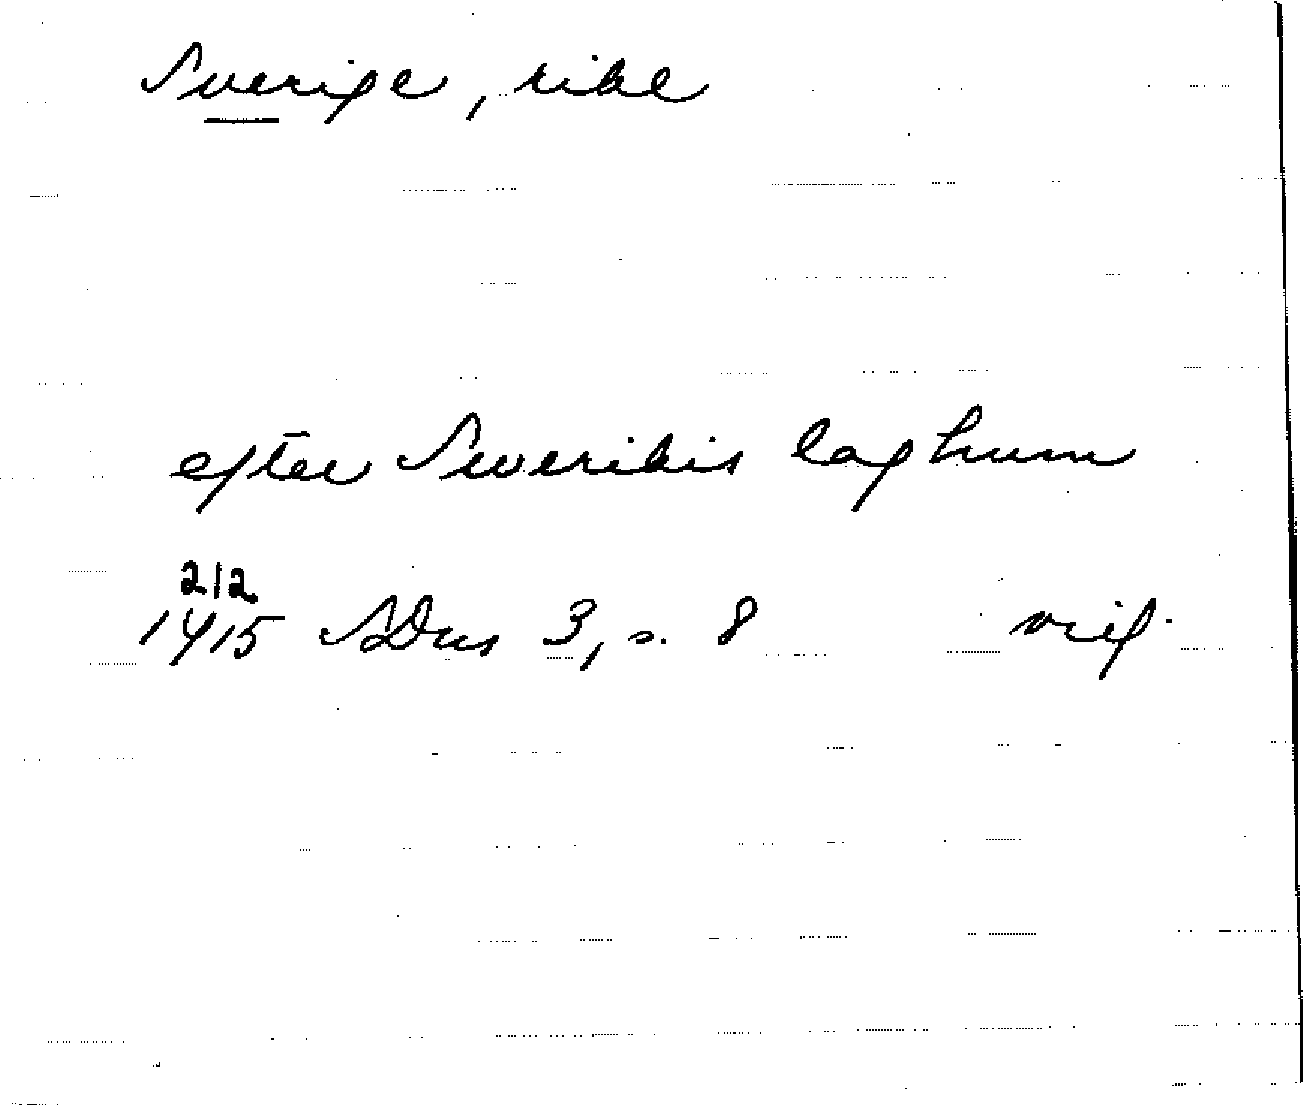 Sverige, rike
efter Swerikis laghum
2/2
1415 SDns 3, s. 8 orig.